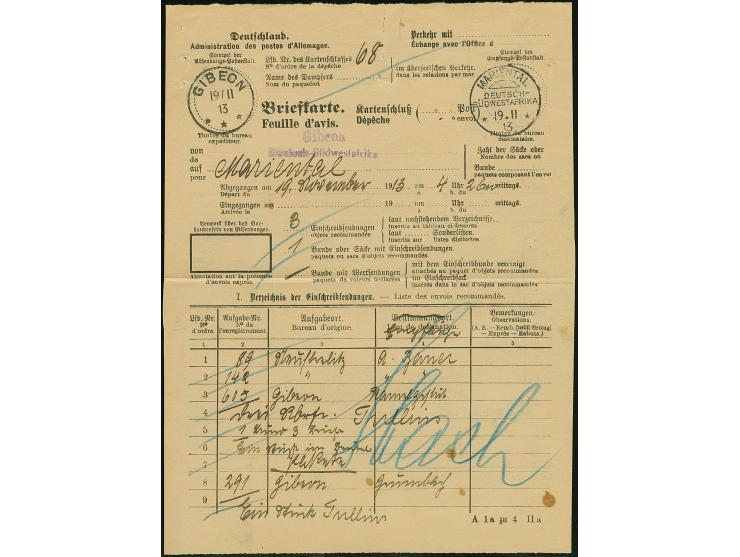 Deutschland.
Administration des postes d'Allemagne.
Verkehr mit
Échange avec l'Office d
Stempel der Absendungs-Postanstalt
Lfd. Nr. des Kartenschlusses 68
N° d'ordre de la dépêche
im überseeischen Verkehr.
dans les relations par mer.
Stempel der Empfangs-Postanstalt
Name des Dampfers
Nom du paquebot
GIBEON
19/11
13
MARIENTAL
DEUTSCH-
SÜDWESTAFRIKA
19.11
13
Briefkarte.
Feuille d'avis.
Kartenschluß
Dépêche
Timbre du bureau expéditeur.
Timbre du bureau destinataire.
Gibeon
Deutsch-Südwestafrika
von
de
auf
pour
Mariental
Zahl der Säcke oder
Nombre des sacs ou
Bunde
paquets composant l'envoi
Abgegangen am 19. November 1913 um 4 Uhr 26 m mittags.
Départ du à h. du
Eingegangen am 19 um Uhr mittags.
Arrivée le à h. du
Vermerk über das Vorhandensein von Eilsendungen.
3 Einschreibsendungen
objets recommandés
laut nachstehendem Verzeichnisse.
inscrits au tableau ci-dessous.
laut Sonderlisten.
inscrits sur listes distinctes.
1 Bunde oder Säcke mit Einschreibsendungen
paquets ou sacs d'objets recommandés
Bunde mit Wertsendungen
paquets de valeurs déclarées
mit dem Einschreibbunde vereinigt
attachés au paquet d'objets recommandés
im Einschreibsack.
insérés dans le sac d'objets recommandés.
Annotation sur la présence d'envois exprès.
I. Verzeichnis der Einschreibsendungen. — Liste des envois recommandés.
Lfd. Nr.
N° d'ordre.
Aufgabe-Nr.
N° de l'enregistrement.
Aufgabeort.
Bureau d'origine.
Bestimmungsort.
Lieu de destination.
Empfänger
Bemerkungen.
Observations.
(A. R. – Remb. [nebst Betrag] – Exprès – Rebuts.)
1 2 3 4 5
1 89 Neustrelitz
2 142 " "
3 605 Gibeon
4 drei
5
6 Ein
7
8 291 Gibeon Grumbach
9 Ein Stück
A 1a zu 4 IIa